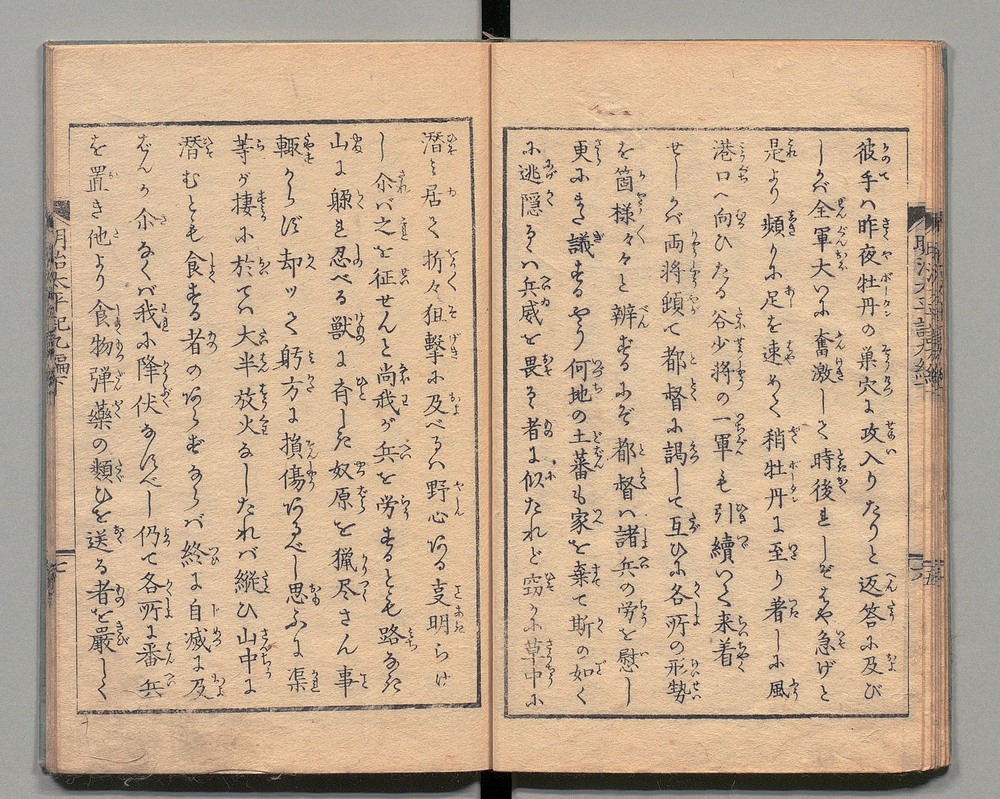 彼手ハ昨夜牡丹の巣穴に攻入りたりと返答に及び
しかバ全軍大いに奮激して時後れしぞはや急げと
是より頻りに足を速めて稍牡丹に至り着しに風
港口へ向ひたる谷少将の一軍も引續いて来着
せしかバ両将頓て都督に謁して互ひに各所の形勢
を箇様々々と辨ずるにぞ都督ハ諸兵の労を慰し
更にまた議するやう何地の土蕃も家を棄て斯の如く
に逃隠るハ兵威を畏るゝ者に似たれど窃かに草中に
潜み居て折々狙撃に及べるハ野心ある事明らけ
し尓バ之を征せんと尚我が兵を労するとも路なき
山に躱れ忍べる獣に斉しき奴原を猟尽さん事
輙からず却ッて躬方に損傷あるべし思ふに渠
等が棲に於てハ大半放火なしたれバ縦ひ山中に
潜むとも食する者のあらずならバ終に自滅に及
ばんか尓なくバ我に降伏なすべし仍て各所に番兵
を置き他より食物弾藥の類ひを送る者を嚴しく
明治太平記九編下
七